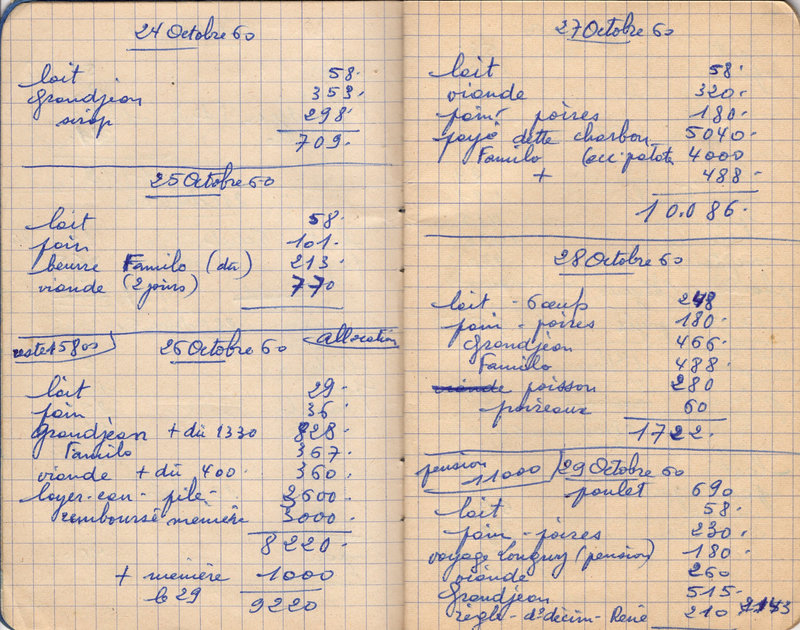 24 Octobre 60
lait 58.
Grandjean 353.
sirop 298.
709.
25 Octobre 60
lait 58.
pain 101.
beurre Familo (dû) 213.
viande (2 jours) 770
reste 15800 26 Octobre 60 allocation
lait 29.
pain 36
Grandjean + dû 1330 828.
Familo 367.
viande + dû 400. 360.
loyer-eau- pile- 2600.
remboursé mémère 3000.
8220.
+ mémère 1000
le 29 9220
27 Octobre 60
lait 58.
viande 320.
pain poires 180.
payé dette charbon 5040.
Familo (acc patate 4000
+ 488.
10.086.
28 Octobre 60
lait - 6 oeufs 248
pain - poires 180.
Grandjean 466.
Familo 488.
viande poisson 280
poireaux 60
1722.
pension 11000 29 Octobre 60
poulet 690
lait 58.
pain - poires 230.
voyage Longwy (pension) 180.
viande 260
Grandjean 515.
règle - décim - René 210 2143